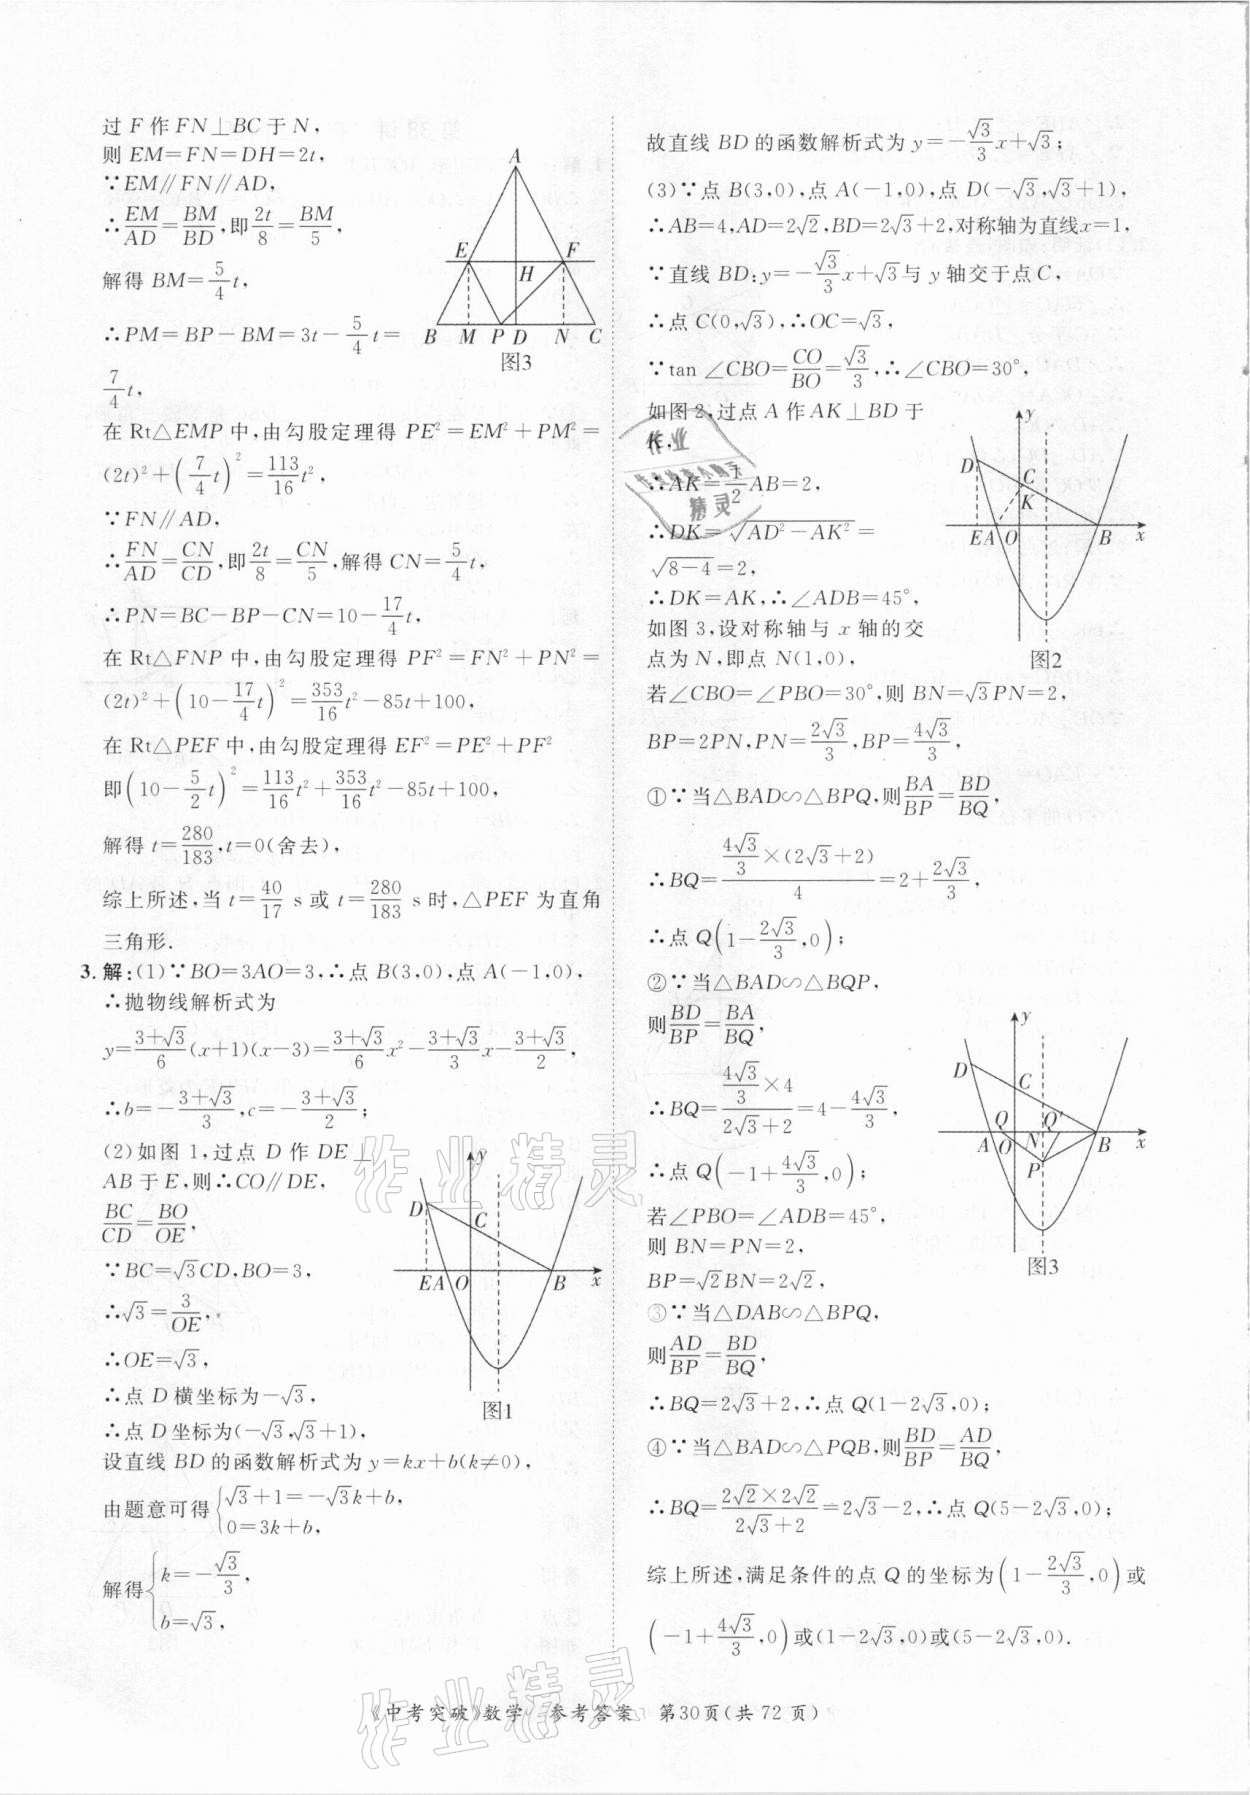 过 F 作 FN⊥BC于 N,
则 EM=FN=DH=2t,
∵EM∥FN∥AD,
∴EM/AD=BM/BD,即2t/8=BM/5,
解得 BM=5/4 t,
∴PM=BP-BM=3t-5/4 t=
7/4 t,
在 Rt△EMP 中,由勾股定理得 PE²=EM²+PM²=
(2t)²+(7/4 t)²=113/16 t²,
∵FN∥AD,
∴FN/AD=CN/CD,即2t/8=CN/5,解得 CN=5/4 t,
∴PN=BC-BP-CN=10-17/4 t,
在 Rt△FNP 中,由勾股定理得 PF²=FN²+PN²=
(2t)²+(10-17/4 t)²=353/16 t²-85t+100,
在 Rt△PEF 中,由勾股定理得 EF²=PE²+PF²
即(10-5/2 t)²=113/16 t²+353/16 t²-85t+100,
解得 t=280/183,t=0(舍去),
综上所述,当 t=40/17 s或 t=280/183 s时,△PEF 为直角
三角形.
A
E
F
H
B M P D N C
图3
3.解:(1)∵BO=3AO=3,∴点 B(3,0),点 A(-1,0),
∴抛物线解析式为
y=(3+√3)/6(x+1)(x-3)=(3+√3)/6 x²-(3+√3)/3 x-(3+√3)/2,
∴b=-(3+√3)/3,c=-(3+√3)/2;
(2)如图 1,过点 D 作 DE⊥
AB于E,则∴CO∥DE,
BC/CD=BO/OE,
∵BC=√3CD,BO=3,
∴√3=3/OE,
∴OE=√3,
∴点 D 横坐标为-√3,
∴点 D坐标为(-√3,√3+1),
设直线 BD 的函数解析式为 y=kx+b(k≠0),
由题意可得{√3+1=-√3k+b,
0=3k+b,
解得{k=-√3/3,
b=√3,
y
D
C
E A O B x
图1
故直线 BD 的函数解析式为 y=-√3/3 x+√3;
(3)∵点 B(3,0),点 A(-1,0),点 D(-√3,√3+1),
∴AB=4,AD=2√2,BD=2√3+2,对称轴为直线x=1,
∵直线 BD:y=-√3/3 x+√3与 y 轴交于点C,
∴点 C(0,√3),∴OC=√3,
∵tan ∠CBO=CO/BO=√3/3,∴∠CBO=30°,
如图 2,过点 A 作 AK⊥BD 于
K,
∴AK=1/2 AB=2,
∴DK=√(AD²-AK²)=
√(8-4)=2,
∴DK=AK,∴∠ADB=45°,
如图 3,设对称轴与 x 轴的交
点为 N,即点 N(1,0),
y
D
C
K
E A O B x
图2
若∠CBO=∠PBO=30°,则 BN=√3PN=2,
BP=2PN,PN=2√3/3,BP=4√3/3,
①∵当△BAD∽△BPQ,则BA/BP=BD/BQ,
∴BQ=(4√3/3×(2√3+2))/4=2+2√3/3,
∴点 Q(1-2√3/3,0);
②∵当△BAD∽△BQP,
则BD/BP=BA/BQ,
∴BQ=(4√3/3×4)/(2√3+2)=4-4√3/3,
∴点 Q(-1+4√3/3,0);
若∠PBO=∠ADB=45°,
则 BN=PN=2,
BP=√2BN=2√2,
③∵当△DAB∽△BPQ,
则AD/BP=BD/BQ,
∴BQ=2√3+2,∴点 Q(1-2√3,0);
④∵当△BAD∽△PQB,则BD/BP=AD/BQ,
∴BQ=(2√2×2√2)/(2√3+2)=2√3-2,∴点 Q(5-2√3,0);
综上所述,满足条件的点 Q 的坐标为(1-2√3/3,0)或
(-1+4√3/3,0)或(1-2√3,0)或(5-2√3,0).
y
D
C
Q Q′
A O N B x
P
图3
作业
精灵
作业精灵
作业精灵
《中考突破》数学 参考答案 第30页(共 72 页)